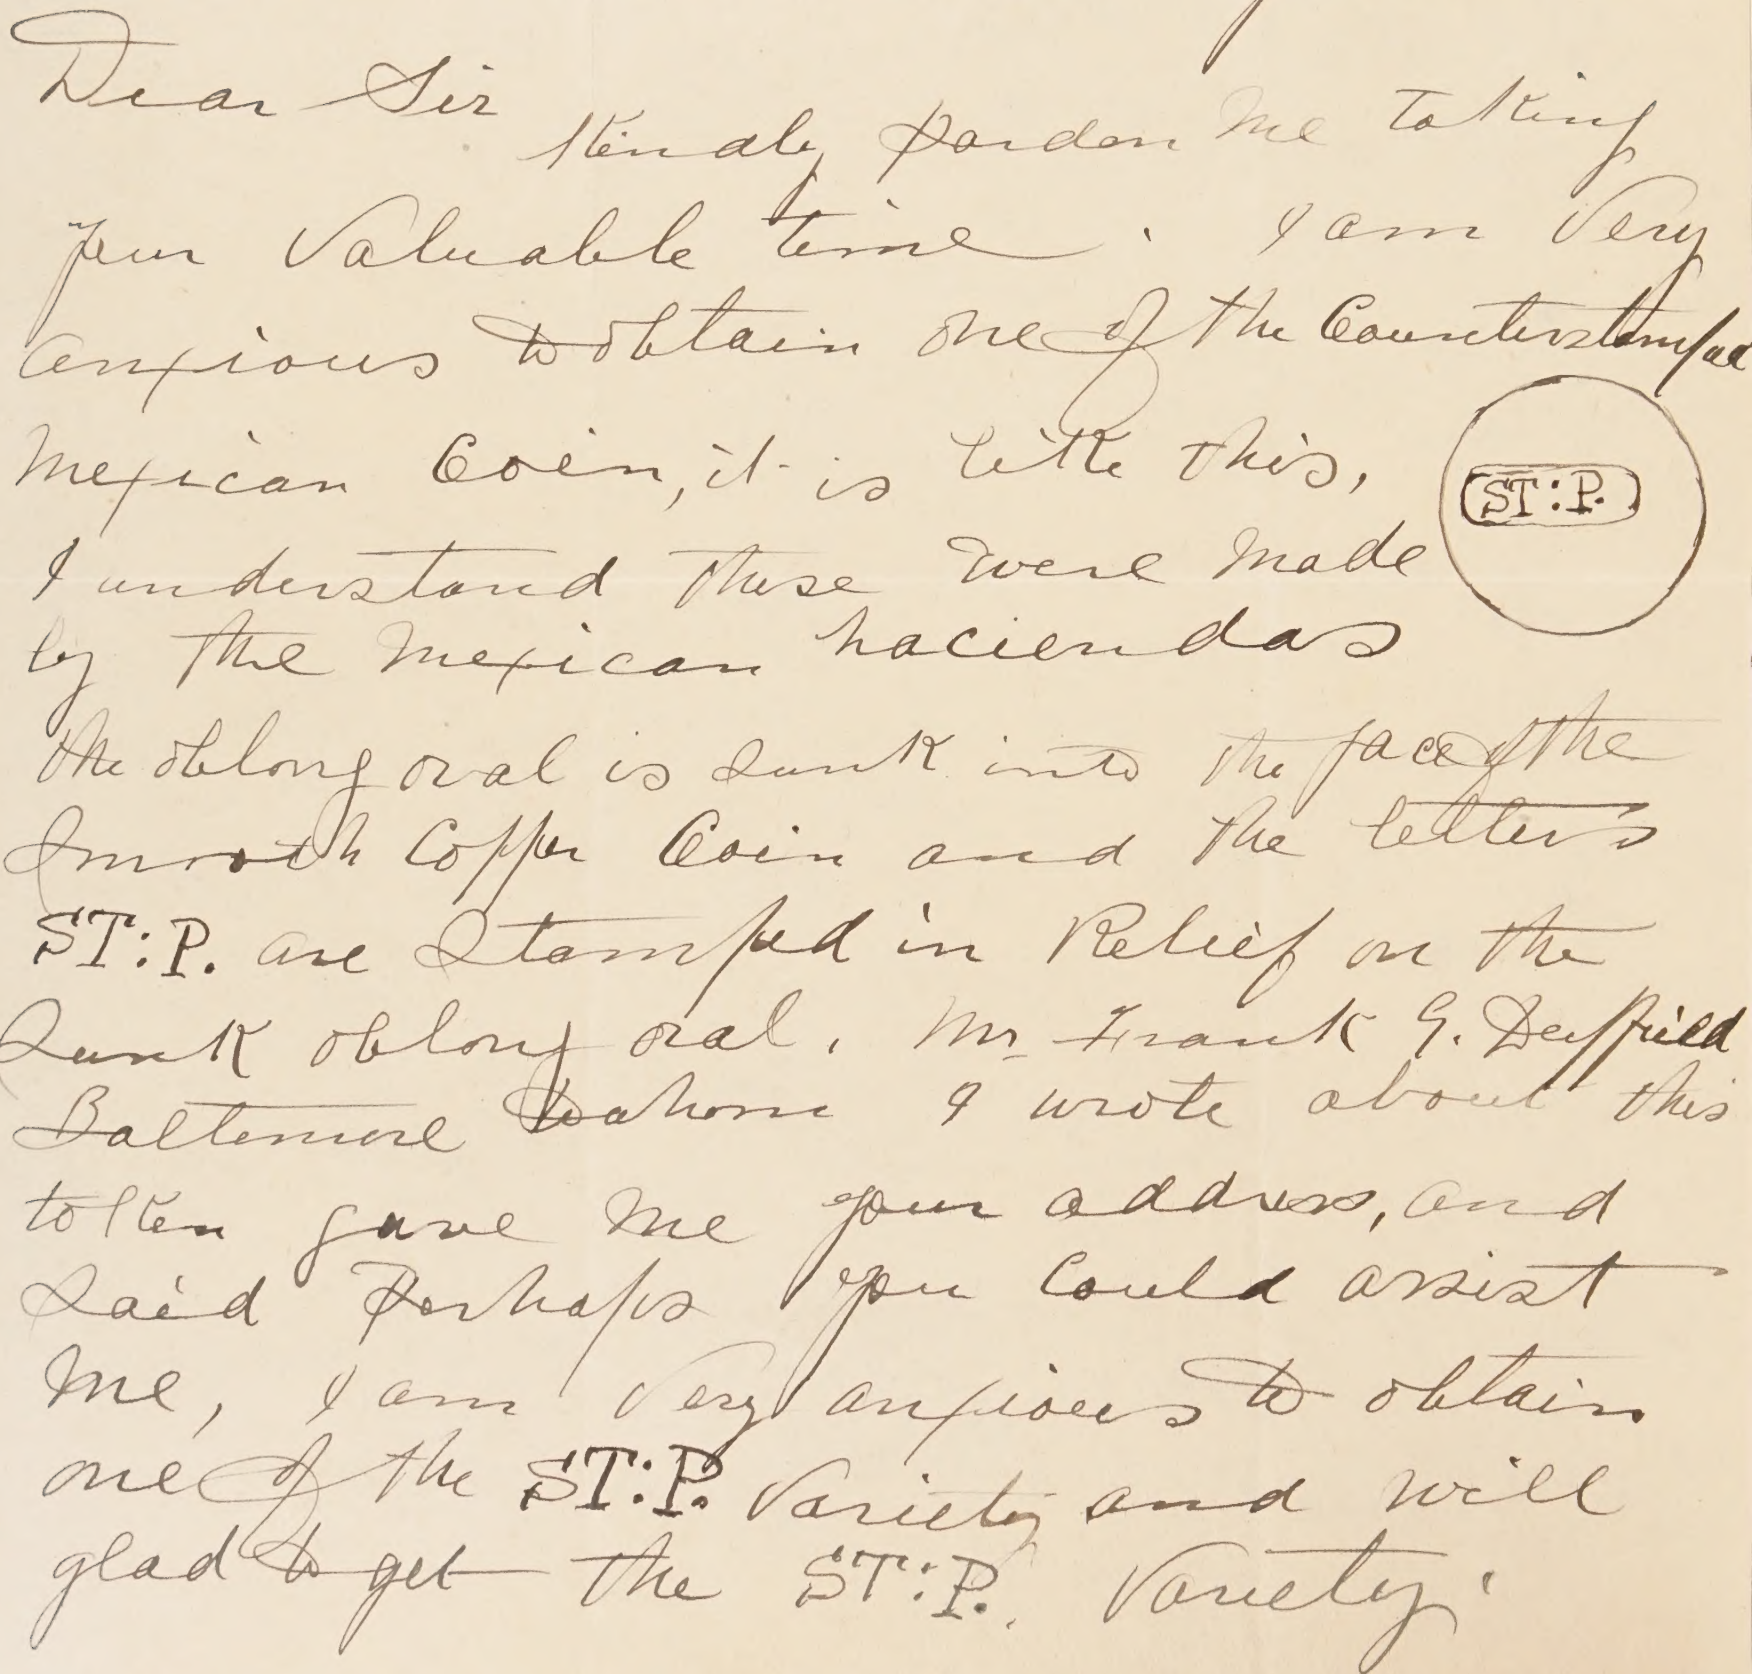 Dear Sir
Kindly pardon me taking
your valuable time. I am very
anxious to obtain one of the Counterstamped
Mexican Coin, it is like this,
ST:P.
I understand these were made
by the Mexican haciendas
the oblong oval is sunk into the face of the
smooth Copper Coin and the letters
ST:P. are stamped in Relief on the
sunk oblong oval. Mr Frank G. Duffield
Baltimore to whom I wrote about this
token gave me your address, and
said Perhaps you Could assist
me, I am very anxious to obtain
one of the ST:P. Variety and will
glad to get the ST:P. Variety.